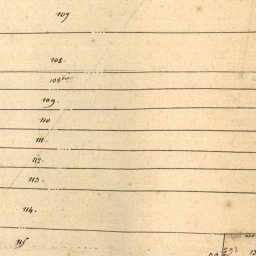 107
108.
108 bis
109.
110
111.
112.
113.
114.
115